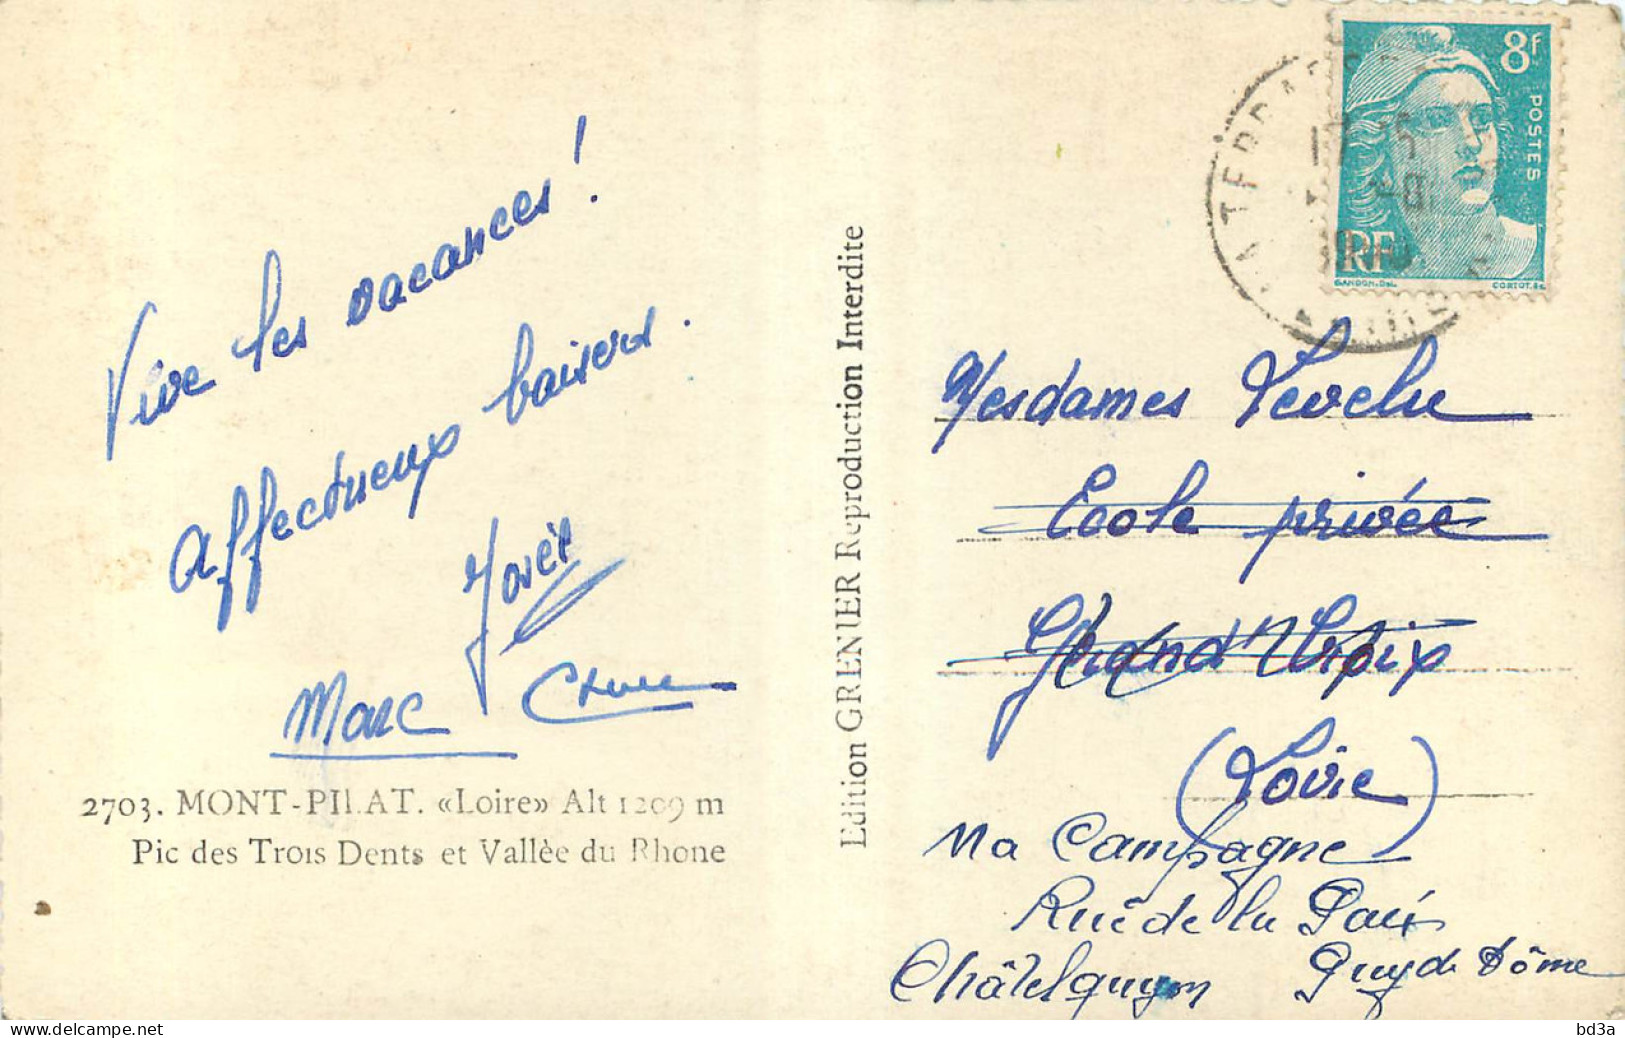 Vive les vacances !
Affectueux baisers.
Marc
2703. MONT-PILAT. «Loire» Alt 1209 m
Pic des Trois Dents et Vallèe du Rhone
Edition GRENIER Reproduction Interdite
8f
POSTES
RF
GANDON.Del.
CORTOT.Sc.
Mesdames
Ecole privée
Grand' Croix
(Loire)
Ma Campagne
Rue de la Paix
Châtelguyon Puy de Dôme
delcampe.net
bd3a